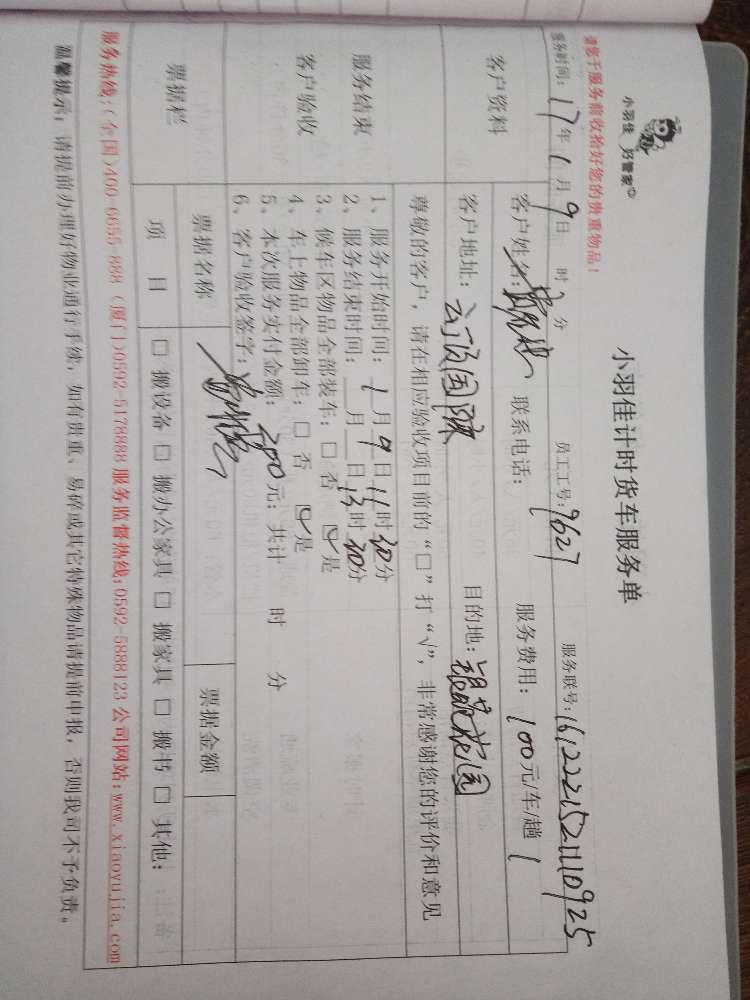 小羽佳 好管家
小羽佳计时货车服务单
请您于服务前收拾好您的贵重物品！
服务时间：17年1月9日 时 分 员工工号：9627 服务联号：
客户资料
客户姓名： 联系电话： 服务费用：100元/车/趟 1
客户地址： 国际 目的地： 花园
尊敬的客户，请在相应验收项目前的“□”打“√”，非常感谢您的评价和意见
服务结束
客户验收
1、服务开始时间：1月9日11时30分
2、服务结束时间：__月__日13时30分
3、候车区物品全部装车：□ 否 ☑是
4、车上物品全部卸车：□ 否 ☑是
5、本次服务实付金额：200元；共计 时 分
6、客户验收签字：
票据栏
票据名称 票据金额
项 目 □ 搬设备 □ 搬办公家具 □ 搬家具 □ 搬书 □ 其他：
服务热线：(全国)400-6655-888 (厦门)0592-5178888 服务监督热线:0592-5888123 公司网站:www.xiaoyujia.com
温馨提示：请提前办理好物业通行手续，如有贵重、易碎或其它特殊物品请提前申报，否则我司不予负责。